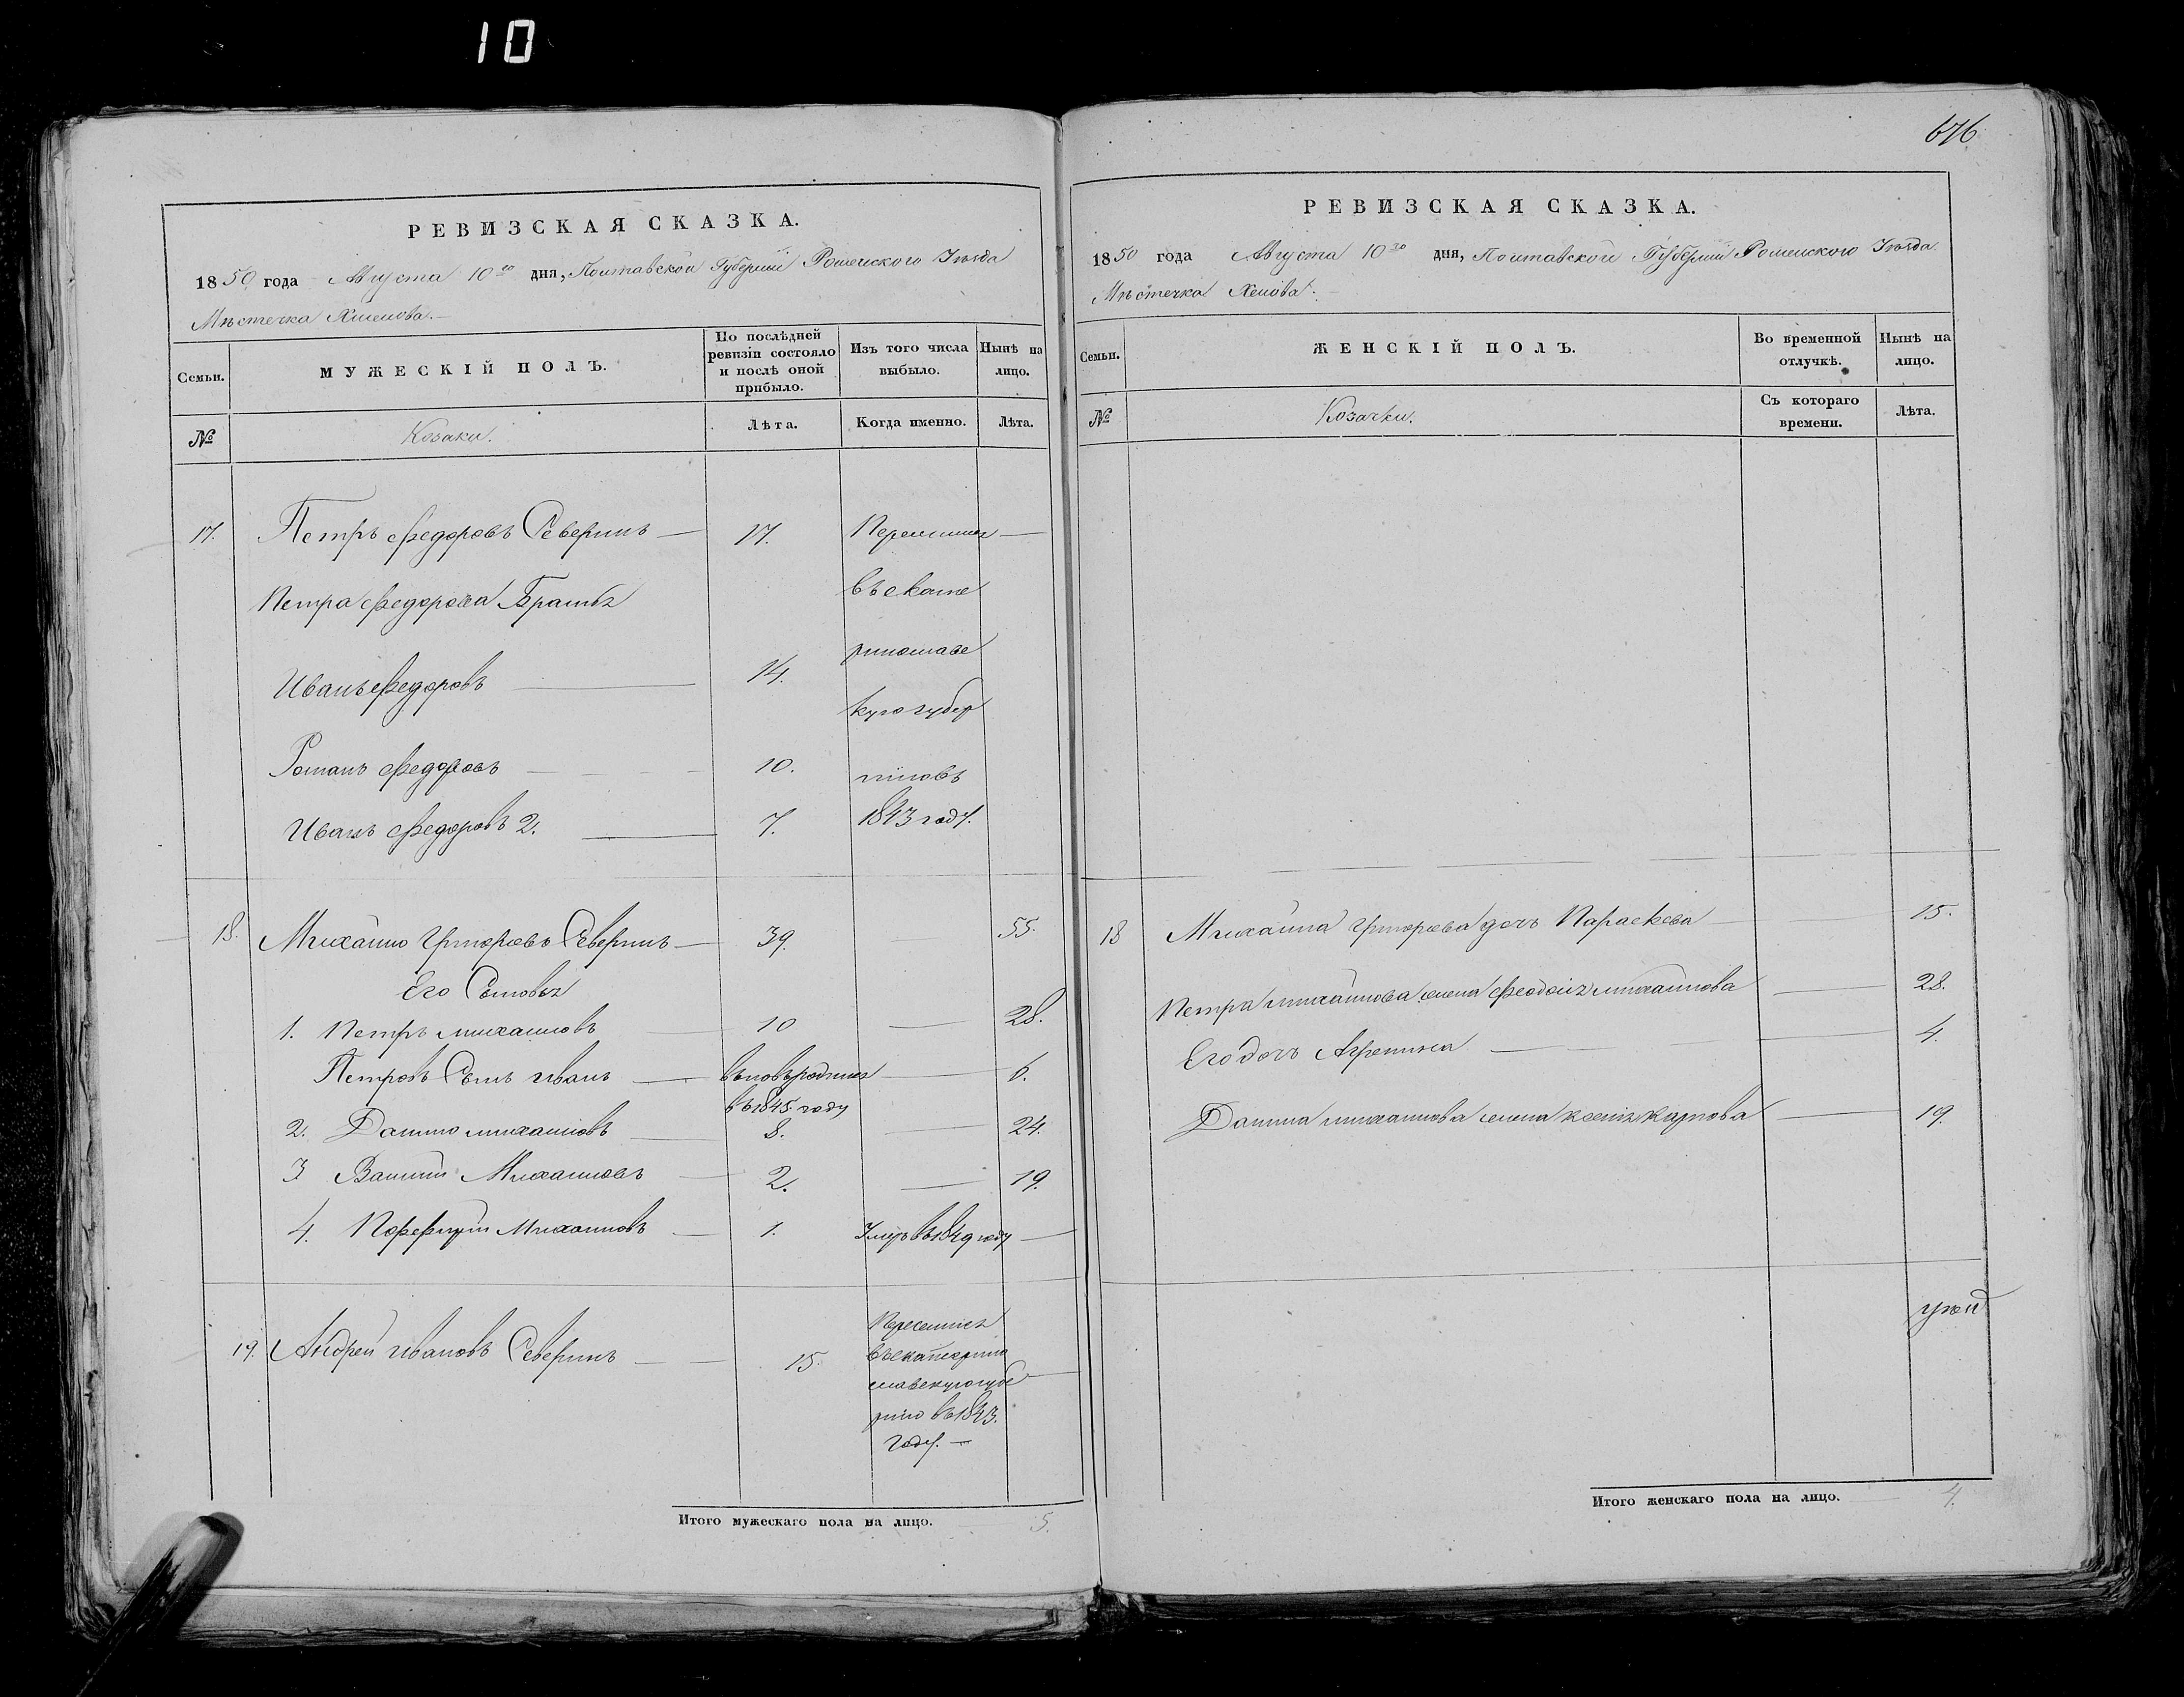 10
676
РЕВИЗСКАЯ СКАЗКА.
1850 года Августа 10го дня, Полтавской Губернии Роменского Уезда
Местечка Хмелова.
Семьи.
МУЖЕСКІЙ ПОЛЪ.
По послѣдней ревизіи состояло и послѣ оной прибыло.
Изъ того числа выбыло.
Нынѣ на лицо.
№
Козаки.
Лѣта.
Когда именно.
Лѣта.
17. Петръ Федоровъ Северинъ — 17. Переселился —
Петра Федорова Братья въ Екате
ринославс
Иванъ Федоровъ — 14.
кую губер
Романъ Федоровъ — 10. нію въ
Иванъ Федоровъ 2. — 7. 1843 году.
18. Михайло Григорьевъ Северинъ — 39. — 55.
Его Сыновья
1. Петръ Михайловъ — 10 — 28.
Петровъ Сынъ Иванъ — вновьродился — 6.
въ 1845 году
2. Данило Михайловъ — 8. — 24.
3 Василий Михайловъ — 2. — 19.
4. Порфирий Михайловъ — 1. Умеръ въ 1849 году —
19. Андрей Ивановъ Северинъ — 15. Переселился
въ Екатерино
славскую губе
рнию въ 1843.
году. —
Итого мужескаго пола на лицо. 5.
РЕВИЗСКАЯ СКАЗКА.
1850 года Августа 10го дня, Полтавской Губернии Роменского Уезда
Местечка Хмелова.
Семьи.
ЖЕНСКІЙ ПОЛЪ.
Во временной отлучкѣ.
Нынѣ на лицо.
№
Козачки.
Съ котораго времени.
Лѣта.
18 Михайла Григорьева дочь Параскева 15.
Петра Михайлова жена Феодосия Михайлова — 28.
Его дочь Агрепина — 4.
Данила Михайлова жена Ксения Карпова — 19.
Итого женскаго пола на лицо. 4.